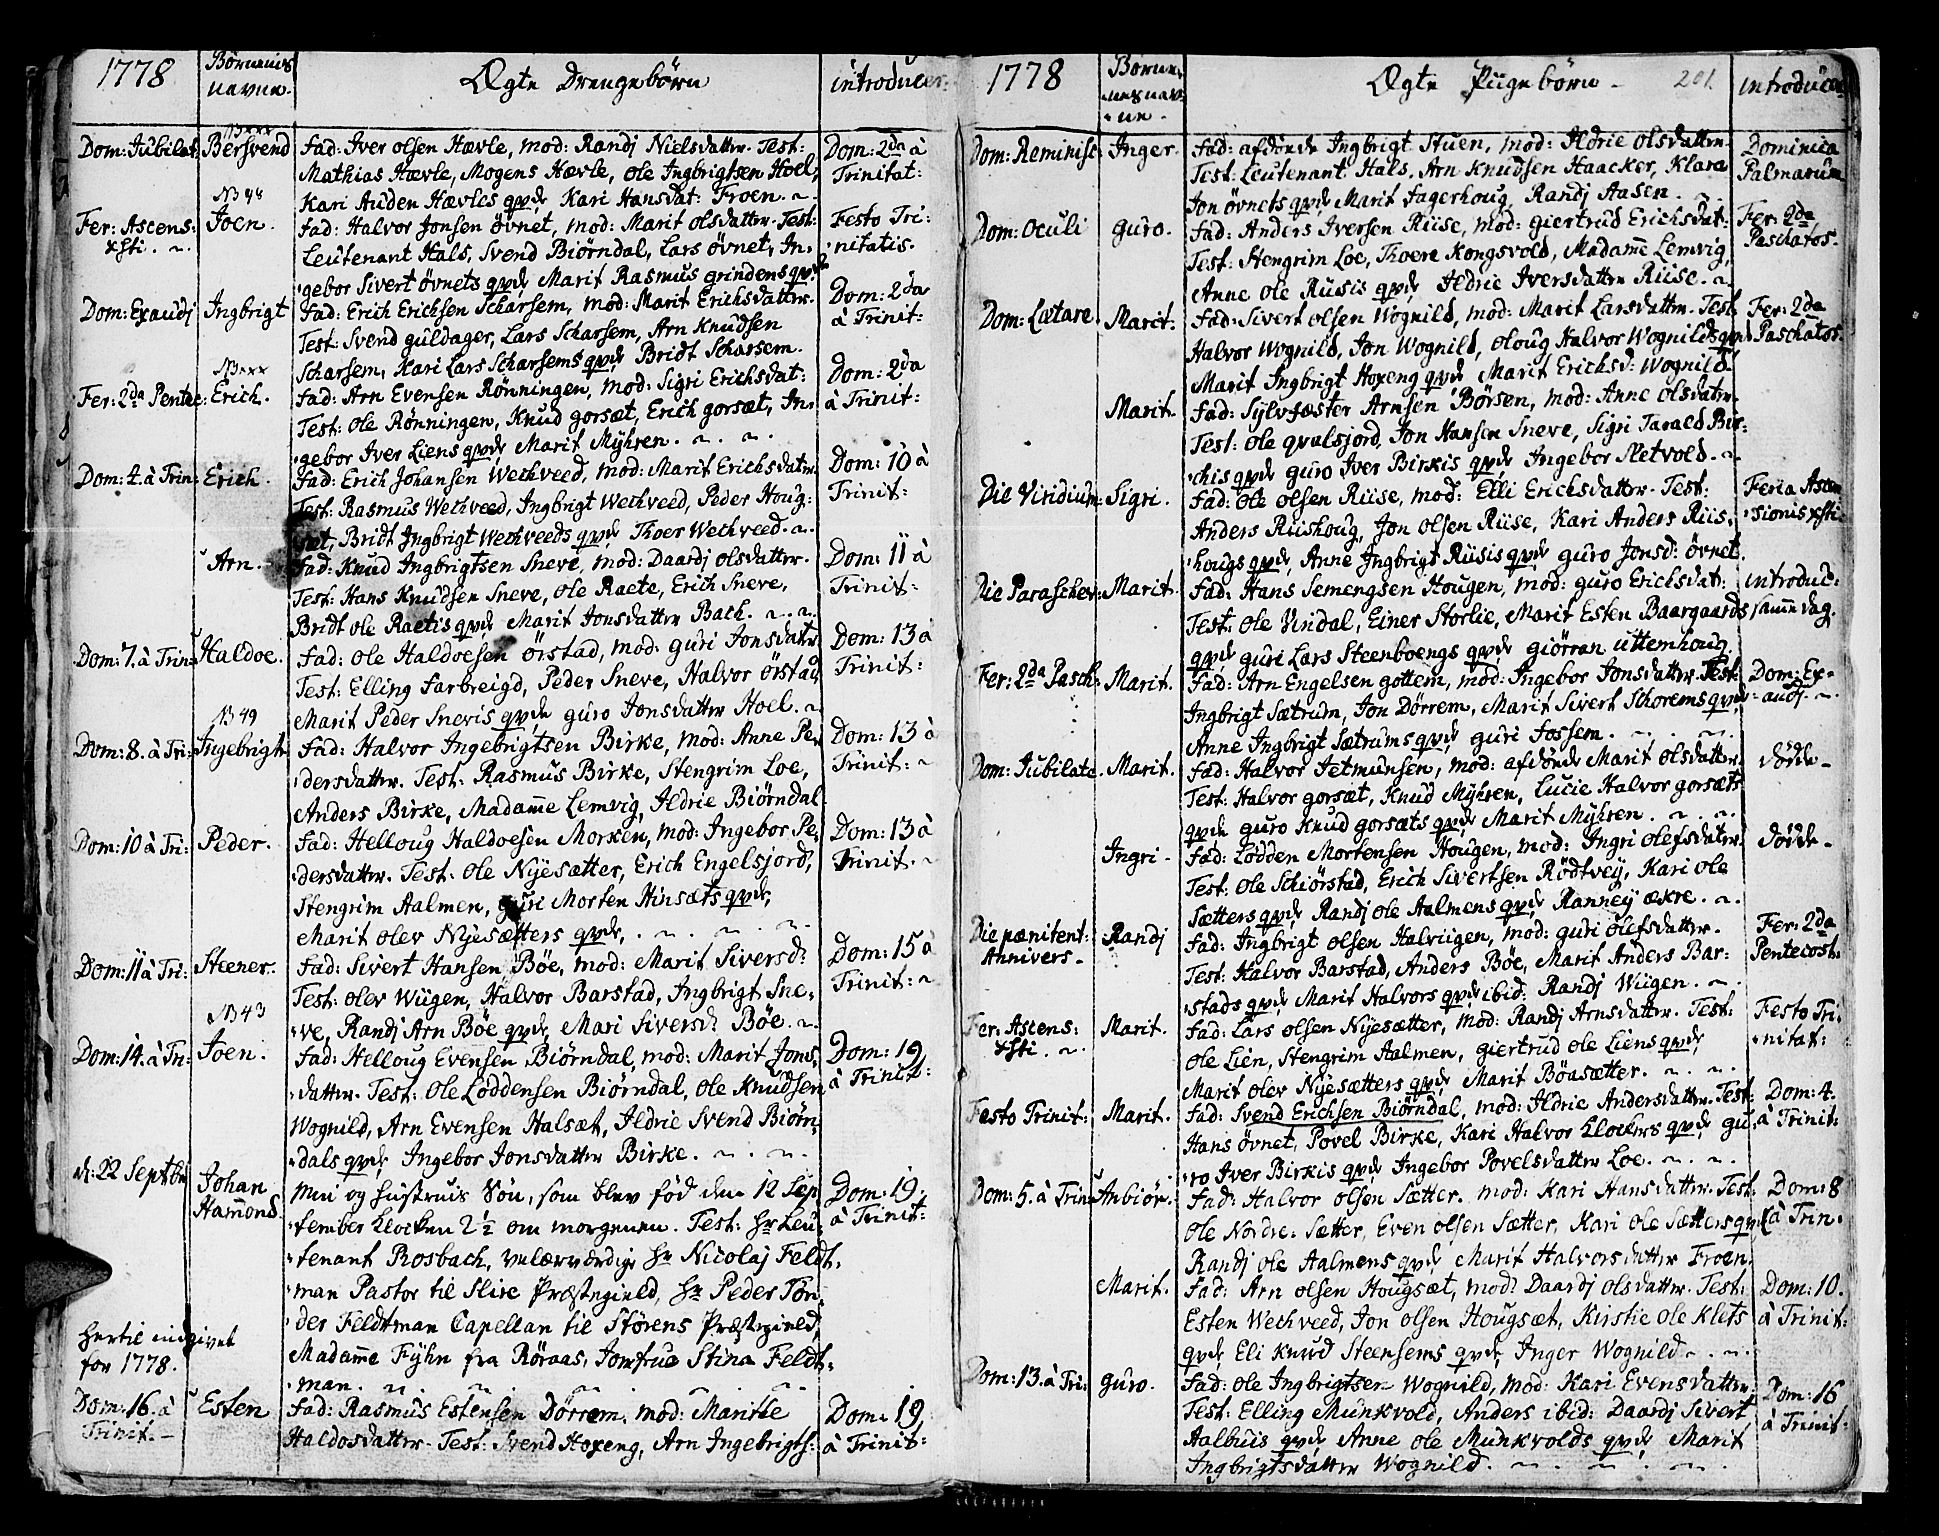 1778
Børnenes
navne.
Ægte Drengebørn
introducer:
Dom: Jubilat:
NBxxx
Bersvend
Fad: Iver olsen Hævle, mod: Randj Nielsdattr. Test:
Mathias Hævle, Mogens Hævle, ole Ingbrigtsen Hoel,
Kari Auden Hævles qvde Kari Hansdat: Froen. ~
Dom: 2da à
Trinitat:
Fer: Ascens:
xsti. ~
NB 48
Joen.
Fad: Halvor Jonsen övnet, mod: Marit olsdattr. Test:
Leutenant Hals, Svend Biörndal, Lars övnet, In-
gebor Sivert övnets qvde Marit Rasmus grindens qvde
Festo Tri:
nitatis.
Dom: Exaudj
Ingbrigt
Fad: Erich Erichsen Scharsem, mod: Marit Erichsdattr.
Test: Svend guldager, Lars Scharsem, Arn Knudsen
Scharsem, Kari Lars Scharsems qvde Bridt Scharsem.
Dom: 2da
à Trinit:
Fer: 2da Pentec:
NBxxx
Erich.
Fad: Arn Evensen Rönningen, mod: Sigri Erichsdat:
Test: ole Rönningen, Knud gorsæt, Erich gorsæt, In-
gebor Iver Liens qvde Marit Myhren. ~ . ~
Dom: 2da
à Trinit:
Dom: 4. à Trin:
Erich.
Fad: Erich Johansen Wechveed, mod: Marit Erichsdatr.
Test: Rasmus Wechveed, Ingbrigt Wechveed, Peder Houg:
sæt, Bridt Ingbrigt Wechveeds qvde Thoer Wechveed. ~
Dom: 10 à
Trinit:
Arn.
Fad: Knud Ingbrigtsen Sneve, mod: Daardj olsdattr.
Test: Hans Knudsen Sneve, ole Raete, Erich Sneve,
Bridt ole Raetis qvde Marit Jonsdattr Bach. ~ . ~
Dom: 11 à
Trinit:
Dom: 7. à Trin:
Haldoe.
Fad: ole Haldoesen örstad, mod: guri Jonsdatr
Test: Elling Farbreigd, Peder Sneve, Halvor örstad,
Marit Peder Snevis qvde guro Jonsdattr Hoel. ~
Dom: 13 à
Trinit:
Dom: 8. à Tri:
NB 49
Ingebrigt
Fad: Halvor Ingebrigtsen Birke, mod: Anne Pe-
dersdattr. Test: Rasmus Birke, Stengrim Loe,
Anders Birke, Madame Lemvig, Ildrie Biörndal
Dom: 13 à
Trinit: ~
Dom: 10 à Tri:
Peder.
Fad: Helloug Haldoesen Morken, mod: Ingebor Pe-
dersdattr. Test: ole Nyesætter, Erich Engelsjord,
Stengrim Aalmen, guri Morten Hinsæts qvde,
Marit olev Nyesætters qvde, . ~ . ~ . ~
Dom: 13 à
Trinit. ~
Dom: 11 à Tri:
Steener.
Fad: Sivert Hansen Böe, mod: Marit Siversd:
Test: olev Wiigen, Halvor Barstad, Ingbrigt Sne-
ve, Randj Arn Böe qvde, Mari Siversd: Böe. ~
Dom: 15 à
Trinit: ~
Dom: 14. à Tri:
NB 43
Joen.
Fad: Helloug Evensen Biörndal, mod: Marit Jons-
dattr. Test: ole Löddensen Biörndal, ole Knudsen
Wognild, Arn Evensen Halsæt, Ildrie Svend Biörn-
dals qvde Ingebor Jonsdattr Birke. ~ . ~ . ~
Dom: 19
à Trinit:
d: 22 Septbr
Johan
Hamond
Min og Hustrues Sön, som blev föd den 12 Sep-
tember Klocken 2½ om morgenen. Test: Hr Leu-
tenant Rosbach, velærværdige Hr Nicolaj Feldt-
man Pastor til Slire Præstegield, Hr Peder Tön-
der Feldtman Capellan til Störens Præstegield,
Madame Fyhn fra Röraas, Jomfrue Stina Feldt-
man. ~ . ~
Dom: 19.
à Trinit:
Hertil indgivet
for 1778.
Dom: 16. à
Trinit. ~
Esten
Fad: Rasmus Estensen Dörrem, mod: Marite
Haldosdattr. Test: Svend Hoxeng, Arn Ingebrigts:
Dom: 19
à Trinit:
1778
Børne-
nes nav-
ne.
Ægte Piigebörn ~
201.
introducer
Dom: Reminisc:
Inger.
Fad: afdöde Ingbrigt Stuen, mod: Ildrie olsdattr.
Test: Leutenant Hals, Arn Knudsen Haacker, Klara
Jon övnets qvde Marit Fagerhoug, Randj Aasen.
Dominica
Palmarum
Dom: Oculi
guro.
Fad: Anders Iversen Riise, mod: giertrud Erichsdat:
Test: Stengrim Loe, Thoere Kongsvold, Madame Lemvig,
Anne ole Riisis qvde, Ildrie Iversdattr Riise. ~
Fer: 2da
Paschatos.
Dom: Lætare
Marit.
Fad: Sivert olsen Wognild, mod: Marit Larsdattr. Test:
Halvor Wognild, Jon Wognild, oloug Halvor Wognilds qvde
Marit Ingbrigt Hoxeng qvde Marit Erichsd: Wognild.
Fer: 2da
Paschatos.
Marit.
Fad: Sylvfæster Arnsen Börsen, mod: Anne olsdatr.
Test: ole qvalsjord, Jon Hansen Sneve, Sigri Tarald Bir-
chis qvde guro Iver Birkis qvde Ingebor Sletvold. ~
Die Viridium
Sigri.
Fad: ole olsen Riise, mod: Elli Erichsdattr. Test:
Anders Riishoug, Jon olsen Riise, Kari Anders Riis-
hougs qvde, Anne Ingbrigt Riisis qvde guro Jonsd: övnet.
Feria Ascen
sionis xsti:
Die Parascheve:
Marit.
Fad: Hans Semengsen Hougen, mod: guro Erichsdat:
Test: ole Vindal, Einer Storlie, Marit Esten Baargaards
qvde guri Lars Steenboengs qvde giörran uttemhoug.
introduc:
samme dag.
Fer: 2da Pasch:
Marit.
Fad: Arn Engelsen gottem, mod: Ingebor Jonsdattr. Test:
Ingbrigt Sætrum, Jon Dörrem, Marit Sivert Schorems qvde
Anne Ingbrigt Sætrums qvde guri Fossem. ~ . ~ . ~
Dom: Ex-
audj. ~
Dom: Jubilate.
Marit.
Fad: Halvor Jetmundsen, mod: afdöde Marit olsdattr.
Test: Halvor gorsæt, Knud Myhren, Lucie Halvor gorsæts
qvde guro Knud gorsæts qvde Marit Myhren. ~ . ~
döde ~
Ingri ~
Fad: Lödden Mortensen Hougen, mod: Ingri olefsdatr.
Test: ole Schiörstad, Erich Sivertsen Rödtvey, Kari ole
Sætters qvde, Randj ole Aalmens qvde, Ranney ækre. ~
döde ~
Die pænitent:
Annivers ~
Randj
Fad: Ingbrigt olsen Halviigen, mod: guri olefsdattr.
Test: Halvor Barstad, Anders Böe, Marit Anders Bar-
stads qvde, Marit Halvors qvde ibid: Randj Wiigen. ~
Fer: 2da
Pentecost:
Fer: Ascens:
xsti. ~
Marit.
Fad: Lars olsen Nyesætter, mod: Randj Arnsdattr. Test:
ole Lien, Stengrim Aalmen, giertrud ole Liens qvde,
Marit olev Nyesætters qvde Marit Böasætter. ~ . ~
Festo Tri:
nitat:
Festo Trinit:
Marit.
Fad: Svend Erichsen Biörndal, mod: Ildrie Andersdattr. Test:
Hans övnet, Povel Birke, Kari Halvor Klockers qvde gu-
ro Iver Birkis qvde Ingebor Povelsdattr Loe. ~ . ~ . ~
Dom: 4.
à Trinit:
Dom: 5. à Trin:
Anbiör.
Fad: Halvor olsen Sætter. mod: Kari Hansdattr. Test:
ole Nordre-Sætter, Even olsen Sætter, Kari ole Sætters qvde
Randj ole Aalmens qvde, Marit Halvorsdattr Froen.
Dom: 8
à Trin.
Marit.
Fad: Arn olsen Hougsæt, mod: Daardj olsdattr. Test:
Esten Wechveed, Jon olsen Hougsæt, Kirstie ole Klets
qvde, Eli Knud Steensems qvde, Inger Wognild ~ . ~
Dom: 10.
à Trinit:
Dom: 13. à Tri:
guro.
Fad: ole Ingbrigtsen Wognild, mod: Kari Evensdattr,
Test: Elling Munkvold, Anders ibid: Daardj Sivert
Aalhuis qvde Anne ole Munkvolds qvde, Marit
Ingbrigtsdattr Wognild. ~ . ~ . ~ . ~
Dom: 16
à Trinit: